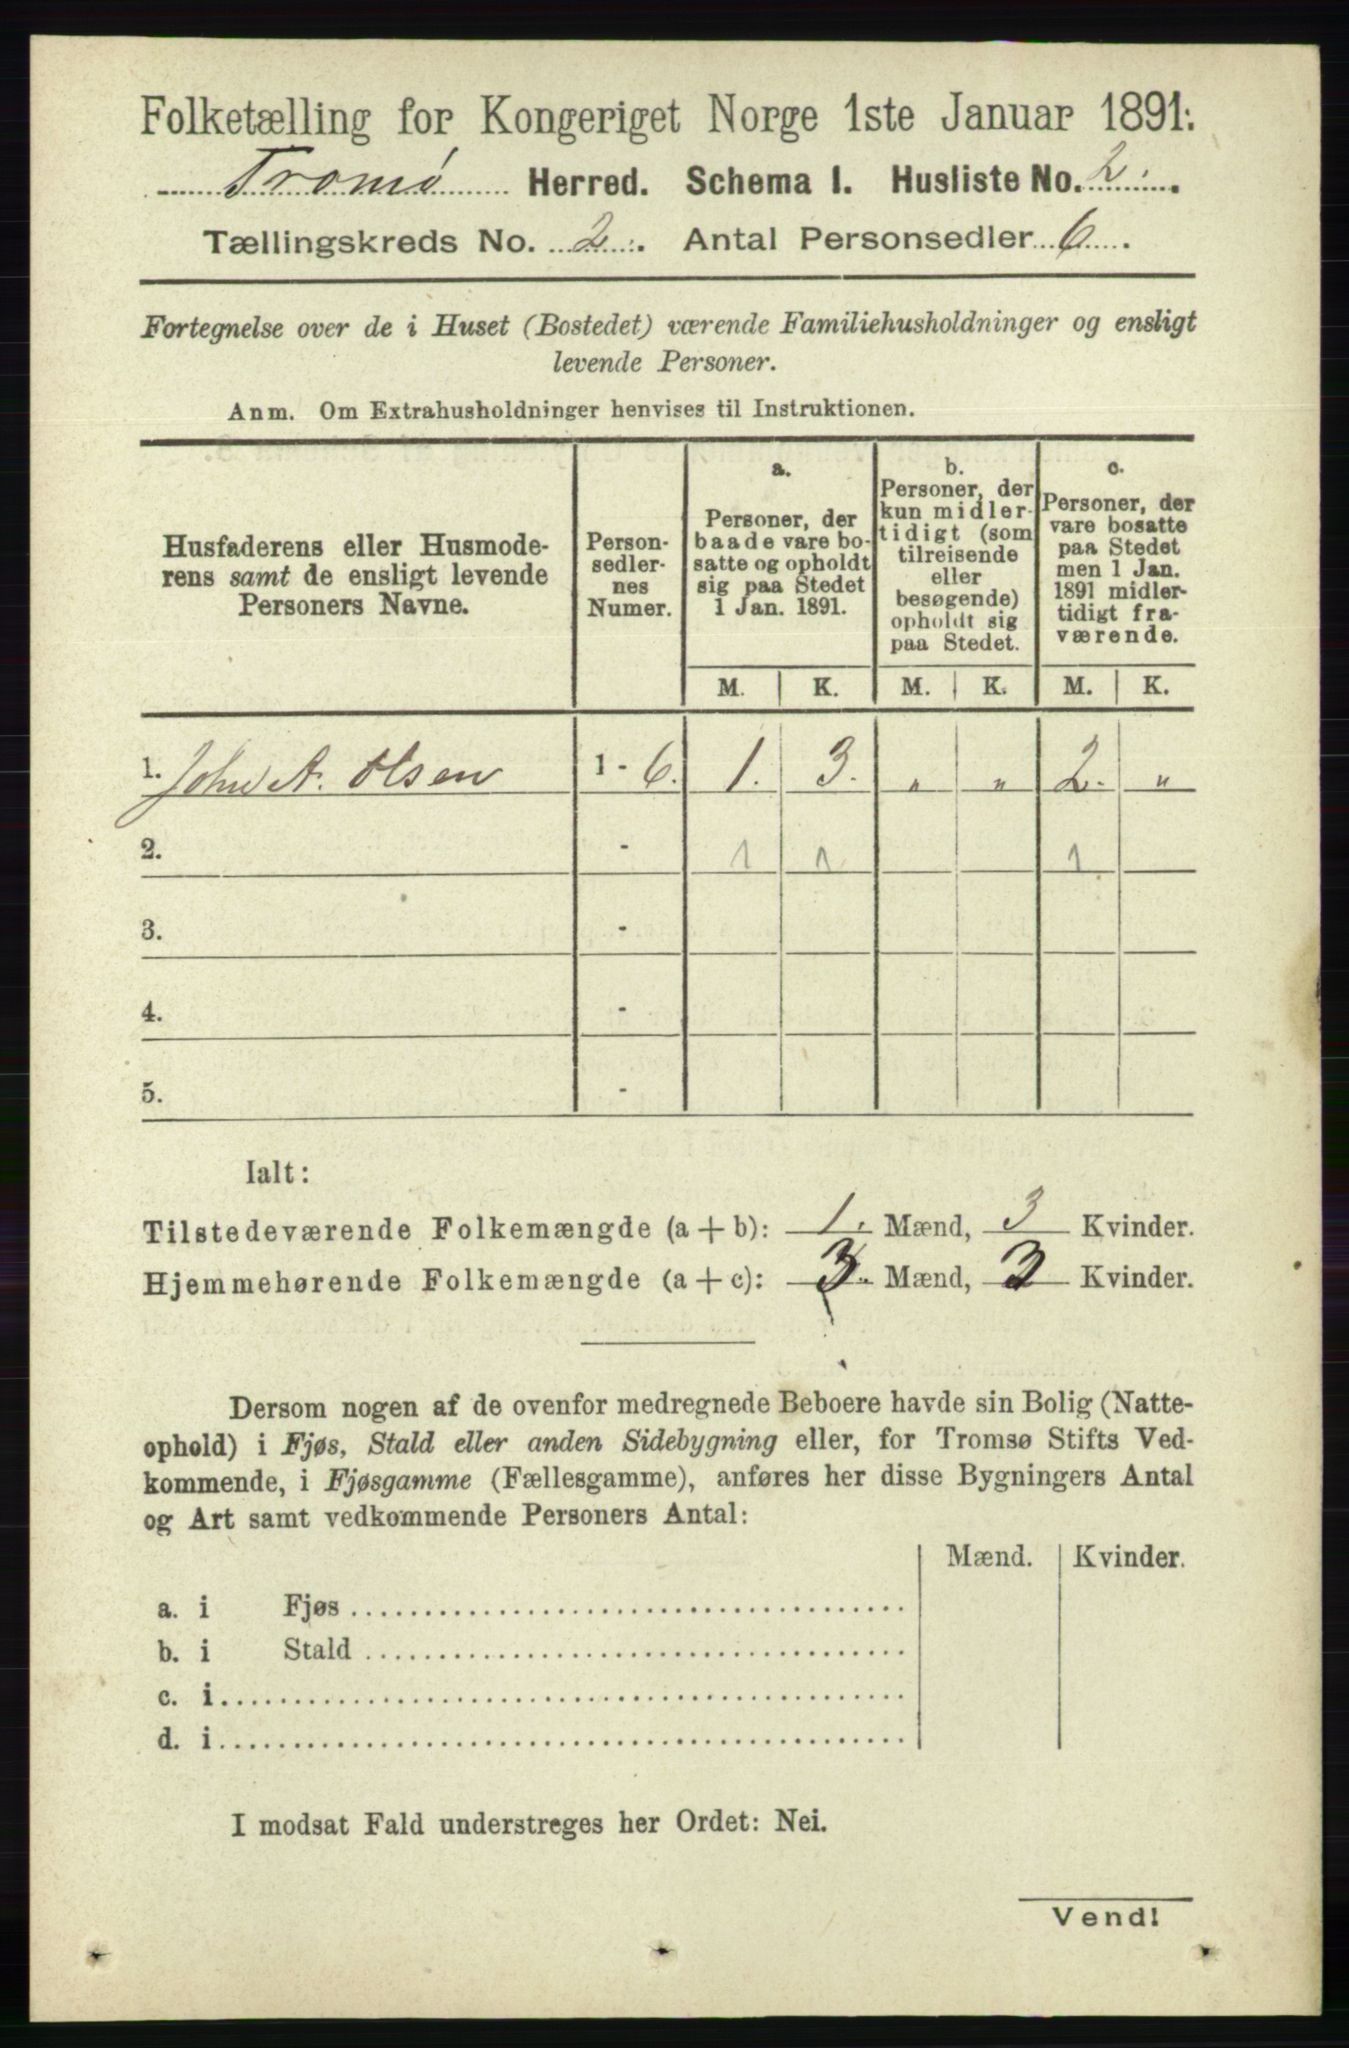 Folketælling for Kongeriget Norge 1ste Januar 1891.
Tromø Herred. Schema I. Husliste No. 2.
Tællingskreds No. 2. Antal Personsedler 6.
Fortegnelse over de i Huset (Bostedet) værende Familiehusholdninger og ensligt
levende Personer.
Anm. Om Extrahusholdninger henvises til Instruktionen.
Husfaderens eller Husmode-
rens samt de ensligt levende
Personers Navne.
Person-
sedler-
nes
Numer.
a.
Personer, der
baade vare bo-
satte og opholdt
sig paa Stedet
1 Jan. 1891.
b.
Personer, der
kun midler-
tidigt (som
tilreisende
eller
besøgende)
opholdt sig
paa Stedet.
c.
Personer, der
vare bosatte
paa Stedet
men 1 Jan.
1891 midler-
tidigt fra-
værende.
M. K. M. K. M. K.
1. John A. Olsen 1 - 6. 1. 3. " " 2. "
2. - 1 1 1
3. -
4. -
5. -
Ialt:
Tilstedeværende Folkemængde (a + b): 1. Mænd, 3 Kvinder.
Hjemmehørende Folkemængde (a + c): 3. Mænd, Kvinder.
Dersom nogen af de ovenfor medregnede Beboere havde sin Bolig (Natte-
ophold) i Fjøs, Stald eller anden Sidebygning eller, for Tromsø Stifts Ved-
kommende, i Fjøsgamme (Fællesgamme), anføres her disse Bygningers Antal
og Art samt vedkommende Personers Antal:
Mænd. Kvinder.
a. i Fjøs
b. i Stald
c. i
d. i
I modsat Fald understreges her Ordet: Nei.
Vend!